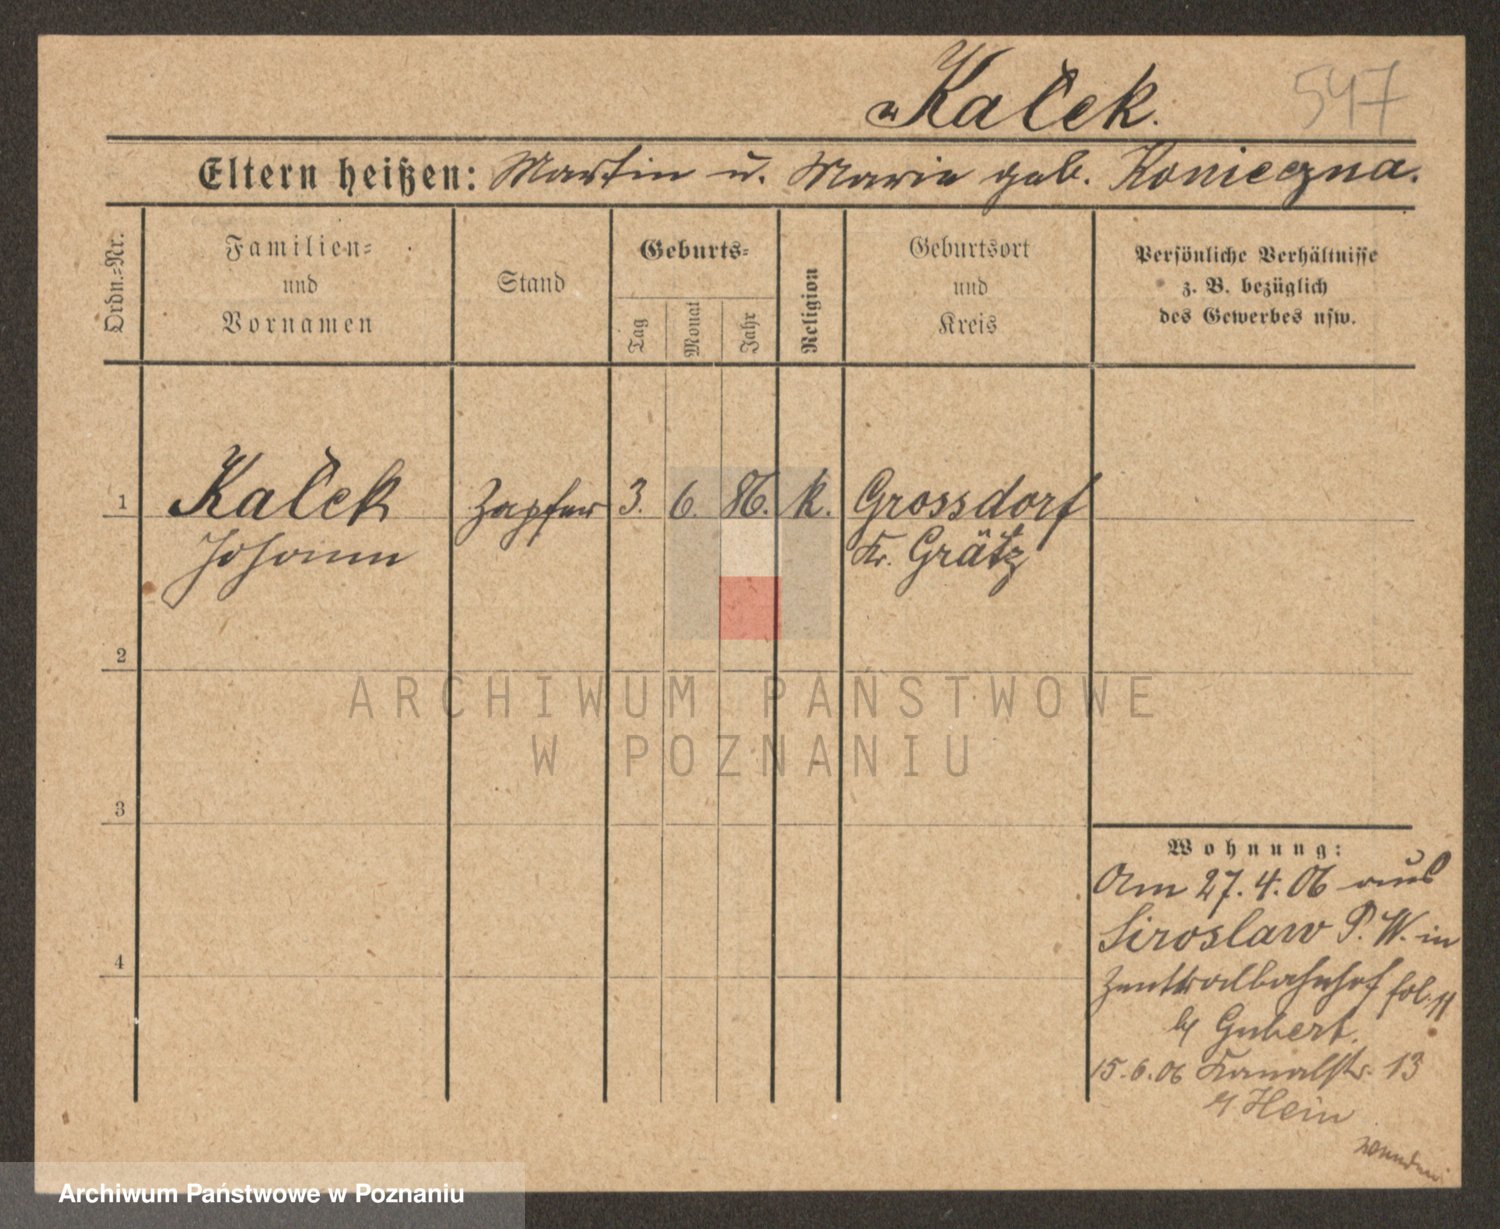 Kaček. 547
Eltern heißen: Martin u. Marie geb. Konieczna.
Ordn.=Nr.
Familien=
und
Vornamen
Stand
Geburts=
Tag
Monat
Jahr
Religion
Geburtsort
und
Kreis
Persönliche Verhältnisse
z. B. bezüglich
des Gewerbes usw.
1 Kaček Zapfer 3. 6. 86. k. Grossdorf
Johann Kr. Grätz
2
ARCHIWUM PAŃSTWOWE
W POZNANIU
3
Wohnung:
Am 27.4.06 aus
Siroslaw P. W. in
Zentralbahnhof
Gubert.
15.6.06 Kanalstr. 13
Hein
4
Archiwum Państwowe w Poznaniu